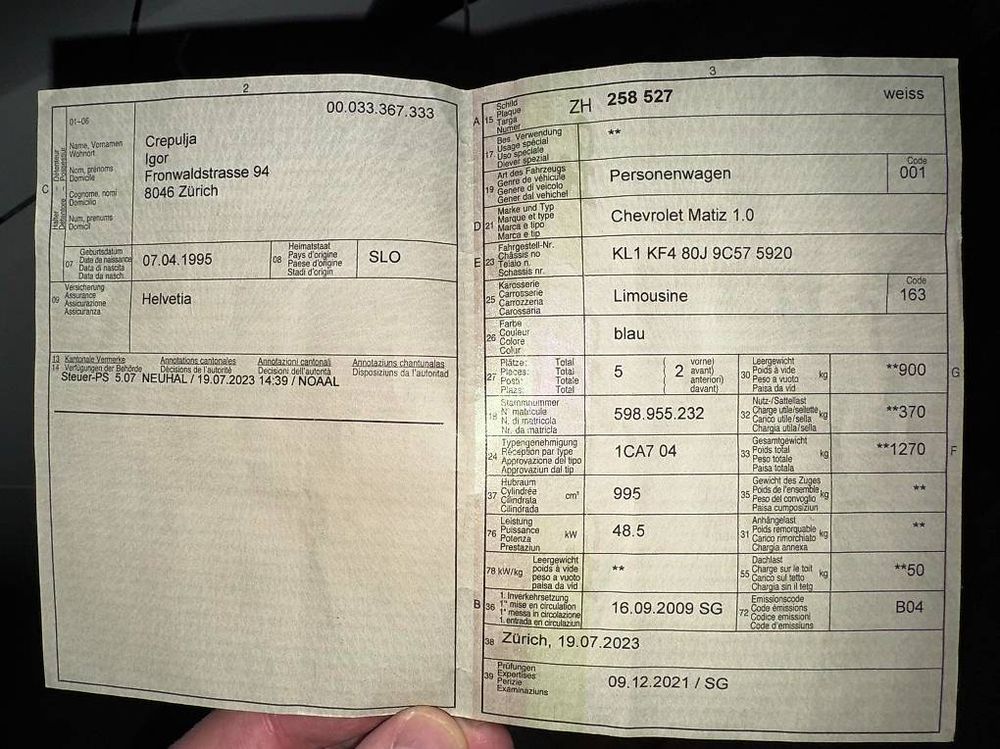 2
00.033.367.333
01–06
C
Halter
Détenteur
Name, Vornamen
Wohnort
Nom, prénoms
Domicile
Cognome, nomi
Domicilio
Num, prenums
Domicil
Crepulja
Igor
Fronwaldstrasse 94
8046 Zürich
07
Geburtsdatum
Date de naissance
Data di nascita
Data da nasch.
07.04.1995
08
Heimatstaat
Pays d'origine
Paese d'origine
Stadi d'origin
SLO
09
Versicherung
Assurance
Assicurazione
Assicuranza
Helvetia
13 Kantonale Vermerke Annotations cantonales Annotazioni cantonali Annotaziuns chantunalas
14 Verfügungen der Behörde Décisions de l'autorité Decisioni dell'autorità Disposiziuns da l'autoritad
Steuer-PS 5.07 NEUHAL / 19.07.2023 14:39 / NOAAL
3
A 15
Schild
Plaque
Targa
Numer
ZH 258 527 weiss
17
Bes. Verwendung
Usage spécial
Uso speciale
Diever spezial
**
19
Art des Fahrzeugs
Genre de véhicule
Genere di veicolo
Gener dal vehichel
Personenwagen
Code
001
D 21
Marke und Typ
Marque et type
Marca e tipo
Marca e tip
Chevrolet Matiz 1.0
E 23
Fahrgestell-Nr.
Châssis no
Telaio n.
Schassis nr.
KL1 KF4 80J 9C57 5920
25
Karosserie
Carrosserie
Carrozzeria
Carossaria
Limousine
Code
163
26
Farbe
Couleur
Colore
Colur
blau
27
Plätze: Total
Places: Total
Posti: Totale
Plazs: Total
5
( 2
vorne)
avant)
anteriori)
davant)
30
Leergewicht
Poids à vide
Peso a vuoto
Paisa da vid
kg
**900
G
18
Stammnummer
N° matricule
N. di matricola
Nr. da matricla
598.955.232
32
Nutz-/Sattellast
Charge utile/sellette
Carico utile/sella
Chargia utila/sella
kg
**370
24
Typengenehmigung
Réception par type
Approvazione del tipo
Approvaziun dal tip
1CA7 04
33
Gesamtgewicht
Poids total
Peso totale
Paisa totala
kg
**1270
F
37
Hubraum
Cylindrée
Cilindrata
Cilindrada
cm³
995
35
Gewicht des Zuges
Poids de l'ensemble
Peso del convoglio
Paisa cumposiziun
kg
**
76
Leistung
Puissance
Potenza
Prestaziun
kW
48.5
31
Anhängelast
Poids remorquable
Carico rimorchiato
Chargia annexa
kg
**
78 kW/kg
Leergewicht
poids à vide
peso a vuoto
paisa da vid
**
55
Dachlast
Charge sur le toit
Carico sul tetto
Chargia sin il tetg
kg
**50
B 36
1. Inverkehrsetzung
1re mise en circulation
1a messa in circolazione
1. entrada en circulaziun
16.09.2009 SG
72
Emissionscode
Code émissions
Codice emissioni
Code d'emissiuns
B04
38
Zürich, 19.07.2023
39
Prüfungen
Expertises
Perizie
Examinaziuns
09.12.2021 / SG